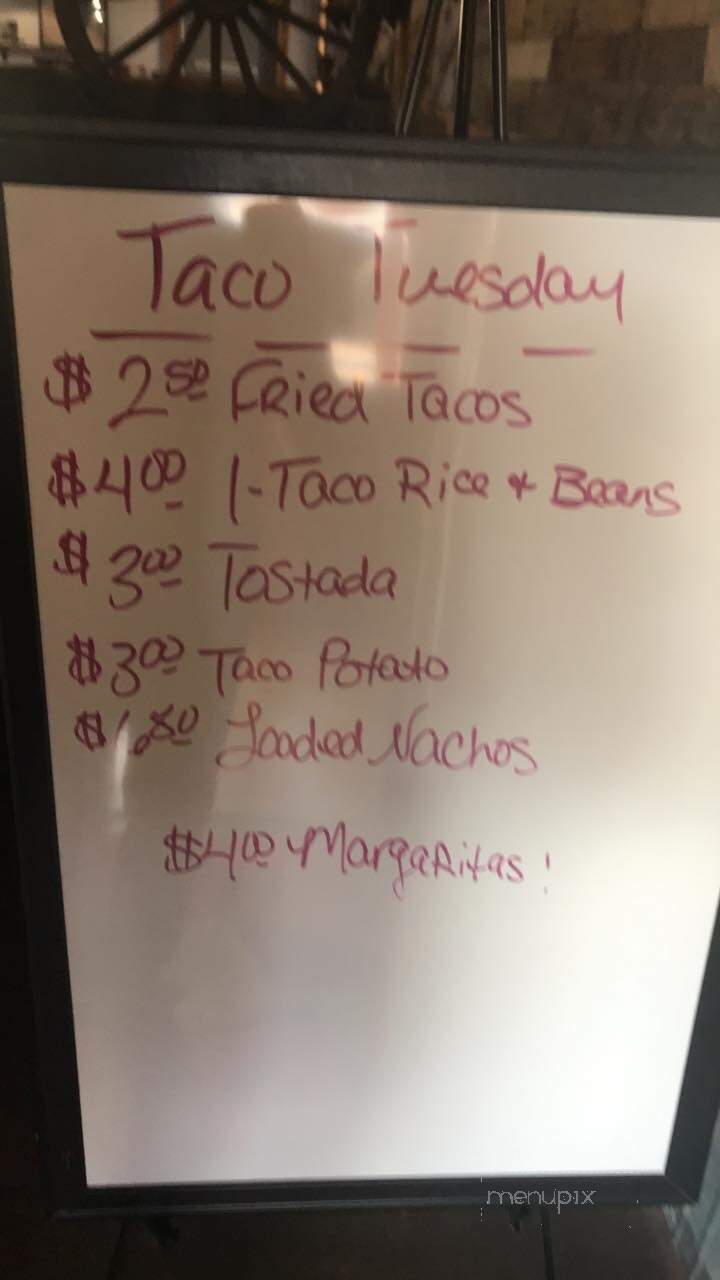 Taco Tuesday
$2.50 Fried Tacos
$4.00 1-Taco Rice & Beans
$3.00 Tostada
$3.00 Taco Potato
Loaded Nachos
$4.00 Margaritas!
menupix